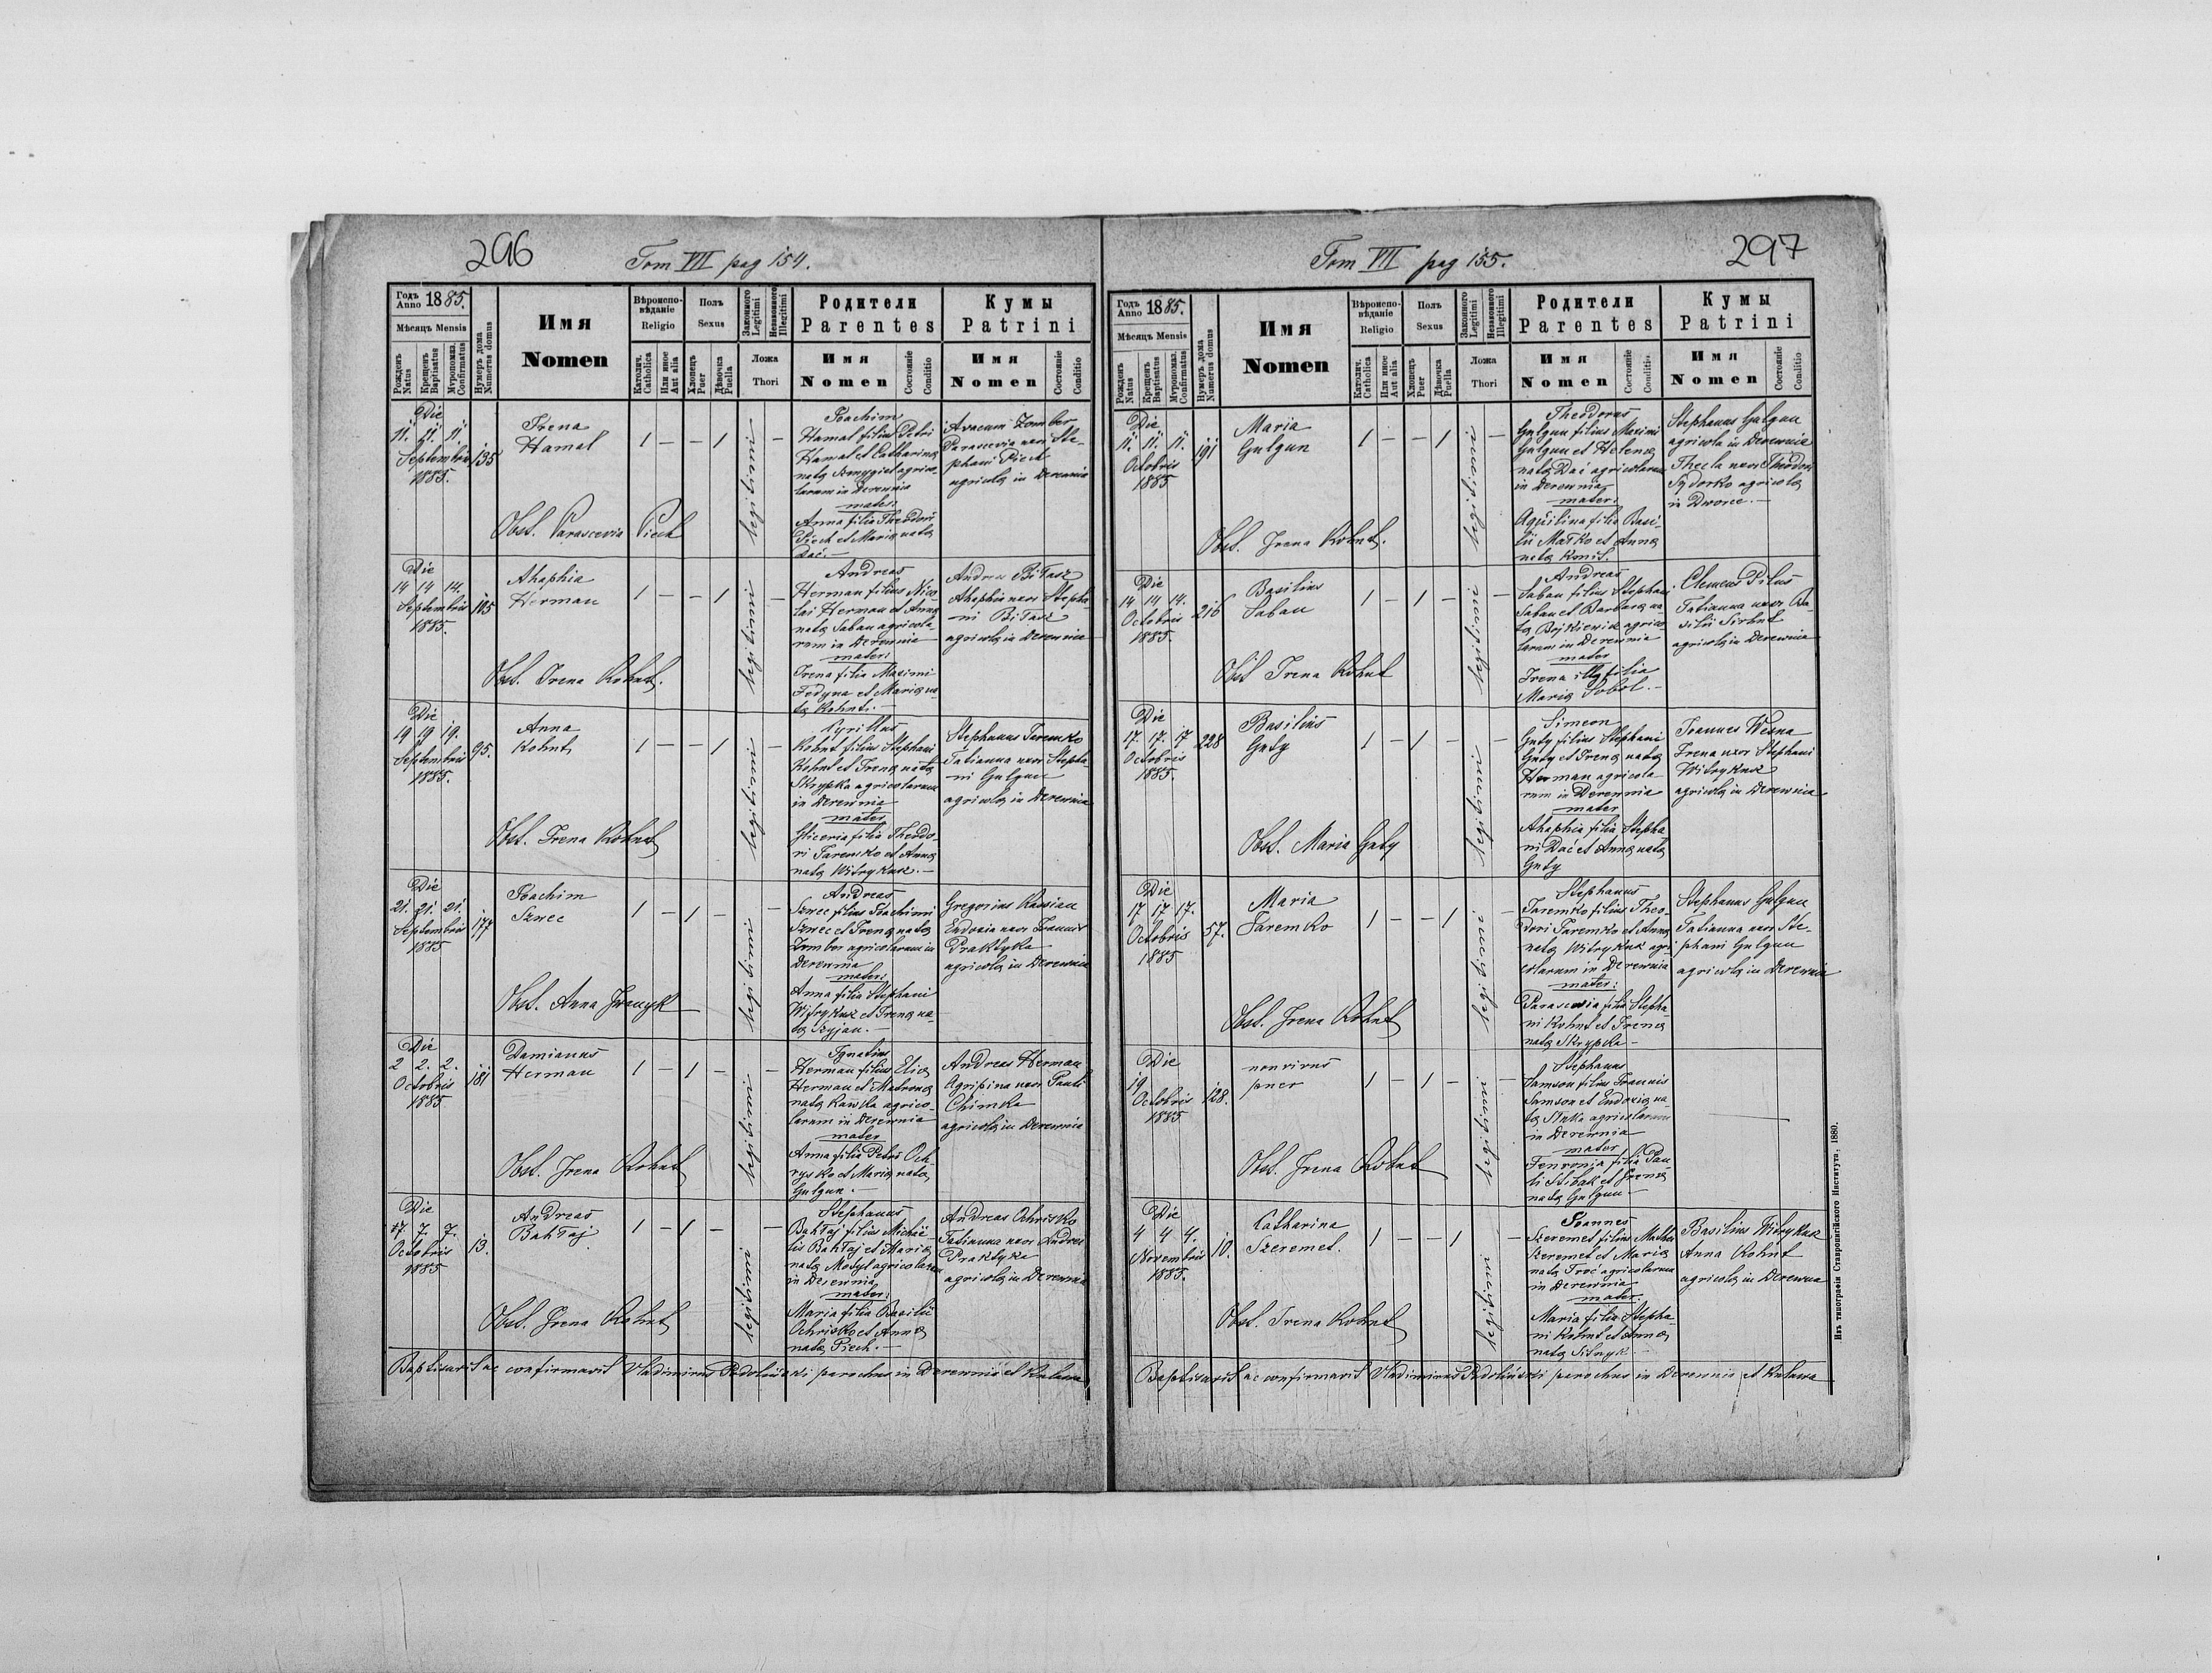 296
Tom VII pag 154.
Годъ Anno 1885.
Мѣсяцъ Mensis
Рожденъ Natus
Крещенъ Baptisatus
Мѵропомаз. Confirmatus
Нумеръ дома Numerus domus
Имя
Nomen
Вѣроисповѣданіе
Religio
Католич. Catholica
Или иное Aut alia
Полъ
Sexus
Хлопецъ Puer
Дѣвочка Puella
Законного Legitimi
Незаконного Illegitimi
Ложа
Thori
Родители
Parentes
Имя
Nomen
Состояніе Conditio
Кумы
Patrini
Имя
Nomen
Состояніе Conditio
Die
11. 11. 11.
Septembris
1885.
135
Irena
Hamal
1 — — 1 —
legitimi
Obst. Parascevia Piech
Joachim
Hamal filius Petri
Hamal et Catharina
nata Szmygiel agrico-
larum in Derewnia
mater:
Anna filia Theodori
Piech et Maria nata
Dać.—
Parascevia uxor Ste-
phani Piech
agricola in Derewnia
Die
14 14 14.
Septembris
1885.
Ahaphia
Herman
1 — — 1 —
legitimi
Obst. Irena Kohut.
Andreas
Herman filius Nico
lai Herman et Anna
nata Saban agricola
rum in Derewnia
mater:
Irena filia Maximi
Fedyna et Maria na
ta Kohut.—
Andreas Biłasz
Ahaphia uxor Stepha-
ni Biłasz
agricola in Derewnia
Die
19 19 19.
Septembris
1885.
95.
Anna
Kohut
1 — — 1 —
legitimi
Obst. Irena Kohut
Kyrillus
Kohut filius Stephani
Kohut et Irena nata
Skrypka agricolarum
in Derewnia
mater
Gliceria filia Theodo-
ri Jaremko et Anna
nata Witrykusz.—
Stephanus Jaremko
Tatianna uxor Stepha-
ni Gulgun
agricola in Derewnia
Die
21. 21. 21.
Septembris
1885
177
Joachim
Szwec
1 — 1 — —
legitimi
Obst. Anna Iwanyk
Andreas
Szwec filius Joachimi
Szwec et Irena nata
Zomber agricolarum in
Derewnia
mater:
Anna filia Stephani
Witrykusz et Irena na-
ta Szyjan.—
Gregorius Kassian
Eudoxia uxor Joannis
Praktyka
agricola in Derewnia
Die
2 2. 2.
Octobris
1885
181
Damianus
Herman
1 — 1 — —
legitimi
Obst. Irena Kohut
Ignatius
Herman filius Elia
Herman et Matrona
nata Kawka agrico-
larum in Derewnia
mater
Anna filia Petri Och
rysko et Maria nata
Gulgun.—
Andreas Herman
Agripina uxor Pauli
Chimka
agricola in Derewnia
Die
7. 7. 7.
Octobris
1885
13.
Andreas
Bahłaj
1 — 1 — —
legitimi
Obst. Irena Kohut
Stephanus
Bahłaj filius Michäe-
lis Bahłaj et Maria
nata Motyl agricolarum
in Derewnia
mater:
Maria filia Basilii
Ochrisko et Anna
nata Piech.—
Andreas Ochrisko
Tatianna uxor Andreae
Praktyka
agricola in Derewnia
Baptisavit ac confirmavit Vladimirus Podoliński parochus in Derewnia et Kulawa
297
Tom VII pag 155.
Годъ Anno 1885.
Мѣсяцъ Mensis
Рожденъ Natus
Крещенъ Baptisatus
Мѵропомаз. Confirmatus
Нумеръ дома Numerus domus
Имя
Nomen
Вѣроисповѣданіе
Religio
Католич. Catholica
Или иное Aut alia
Полъ
Sexus
Хлопецъ Puer
Дѣвочка Puella
Законного Legitimi
Незаконного Illegitimi
Ложа
Thori
Родители
Parentes
Имя
Nomen
Состояніе Conditio
Кумы
Patrini
Имя
Nomen
Состояніе Conditio
Die
11. 11. 11.
Octobris
1885
191
Maria
Gulgun
1 — — 1 —
legitimi
Obst. Irena Kohut.
Theodorus
Gulgun filius Maximi
Gulgun et Helena
nata Dać agricolarum
in Derewnia
mater:
Aquilina filia Basi-
lii Małko et Anna
nata
Stephanus Gulgun
agricola in Derewnia
Thecla uxor Theodori
Sydorko agricola
in Dworce.—
Die
14 14 14.
Octobris
1885.
216
Basilius
Saban
1 — 1 — —
legitimi
Obst Irena Kohut
Andreas
Saban filius Stephani
Saban et Barbara na-
ta Bojkiewicz agrico-
larum in Derewnia
mater
Irena illeg filia
Maria Sobol.—
Clemens Pilus
Tatianna uxor Ba-
silii
agricola in Derewnia
Die
17. 17. 17
Octobris
1885.
228
Basilius
Guty
1 — 1 — —
legitimi
Obst. Maria Guty
Simeon
Guty filius Stephani
Guty et Irena nata
Herman agricola-
rum in Derewnia
mater
Ahaphia filia Stepha-
ni Dać et Anna nata
Guty
Joannes Wesna
Irena uxor Stephani
Witrykusz
agricola in Derewnia
Die
17 17 17.
Octobris
1885
57.
Maria
Jaremko
1 — — 1 —
legitimi
Obst. Irena Kohut
Stephanus
Jaremko filius Theo-
dori Jaremko et Anna
nata Witrykusz agri
colarum in Derewnia
mater:
Parascevia filia Stepha-
ni Kohut et Irena
nata Skrypka—
Stephanus Gulgun
Tatianna uxor Ste-
phani Gulgun
agricola in Derewnia
Die
19
Octobris
1885
128.
non vivus
puer
1 — 1 — —
legitimi
Obst. Irena Kohut
Stephanus
Samson filius Joannis
Samson et Eudoxia na-
ta agricolarum
in Derewnia
mater
Fenronia filia Pau-
li et Irena
nata Gulgun—
Die
4 4 4.
Novembris
1885.
10.
Catharina
Szeremet.
1 — — 1 —
legitimi
Obst. Irena Kohut
Joannes
Szeremet filius Mathei
Szeremet et Maria
nata Troć agricolarum
in Derewnia
mater.
Maria filia Stepha-
ni Kohut et Anna
nata
Basilius Witrykusz
Anna Kohut
agricola in Derewnia
Baptisavit ac confirmavit Vladimirus Podoliński parochus in Derewnia et Kulawa
Изъ типографіи Ставропигійского Института, 1880.